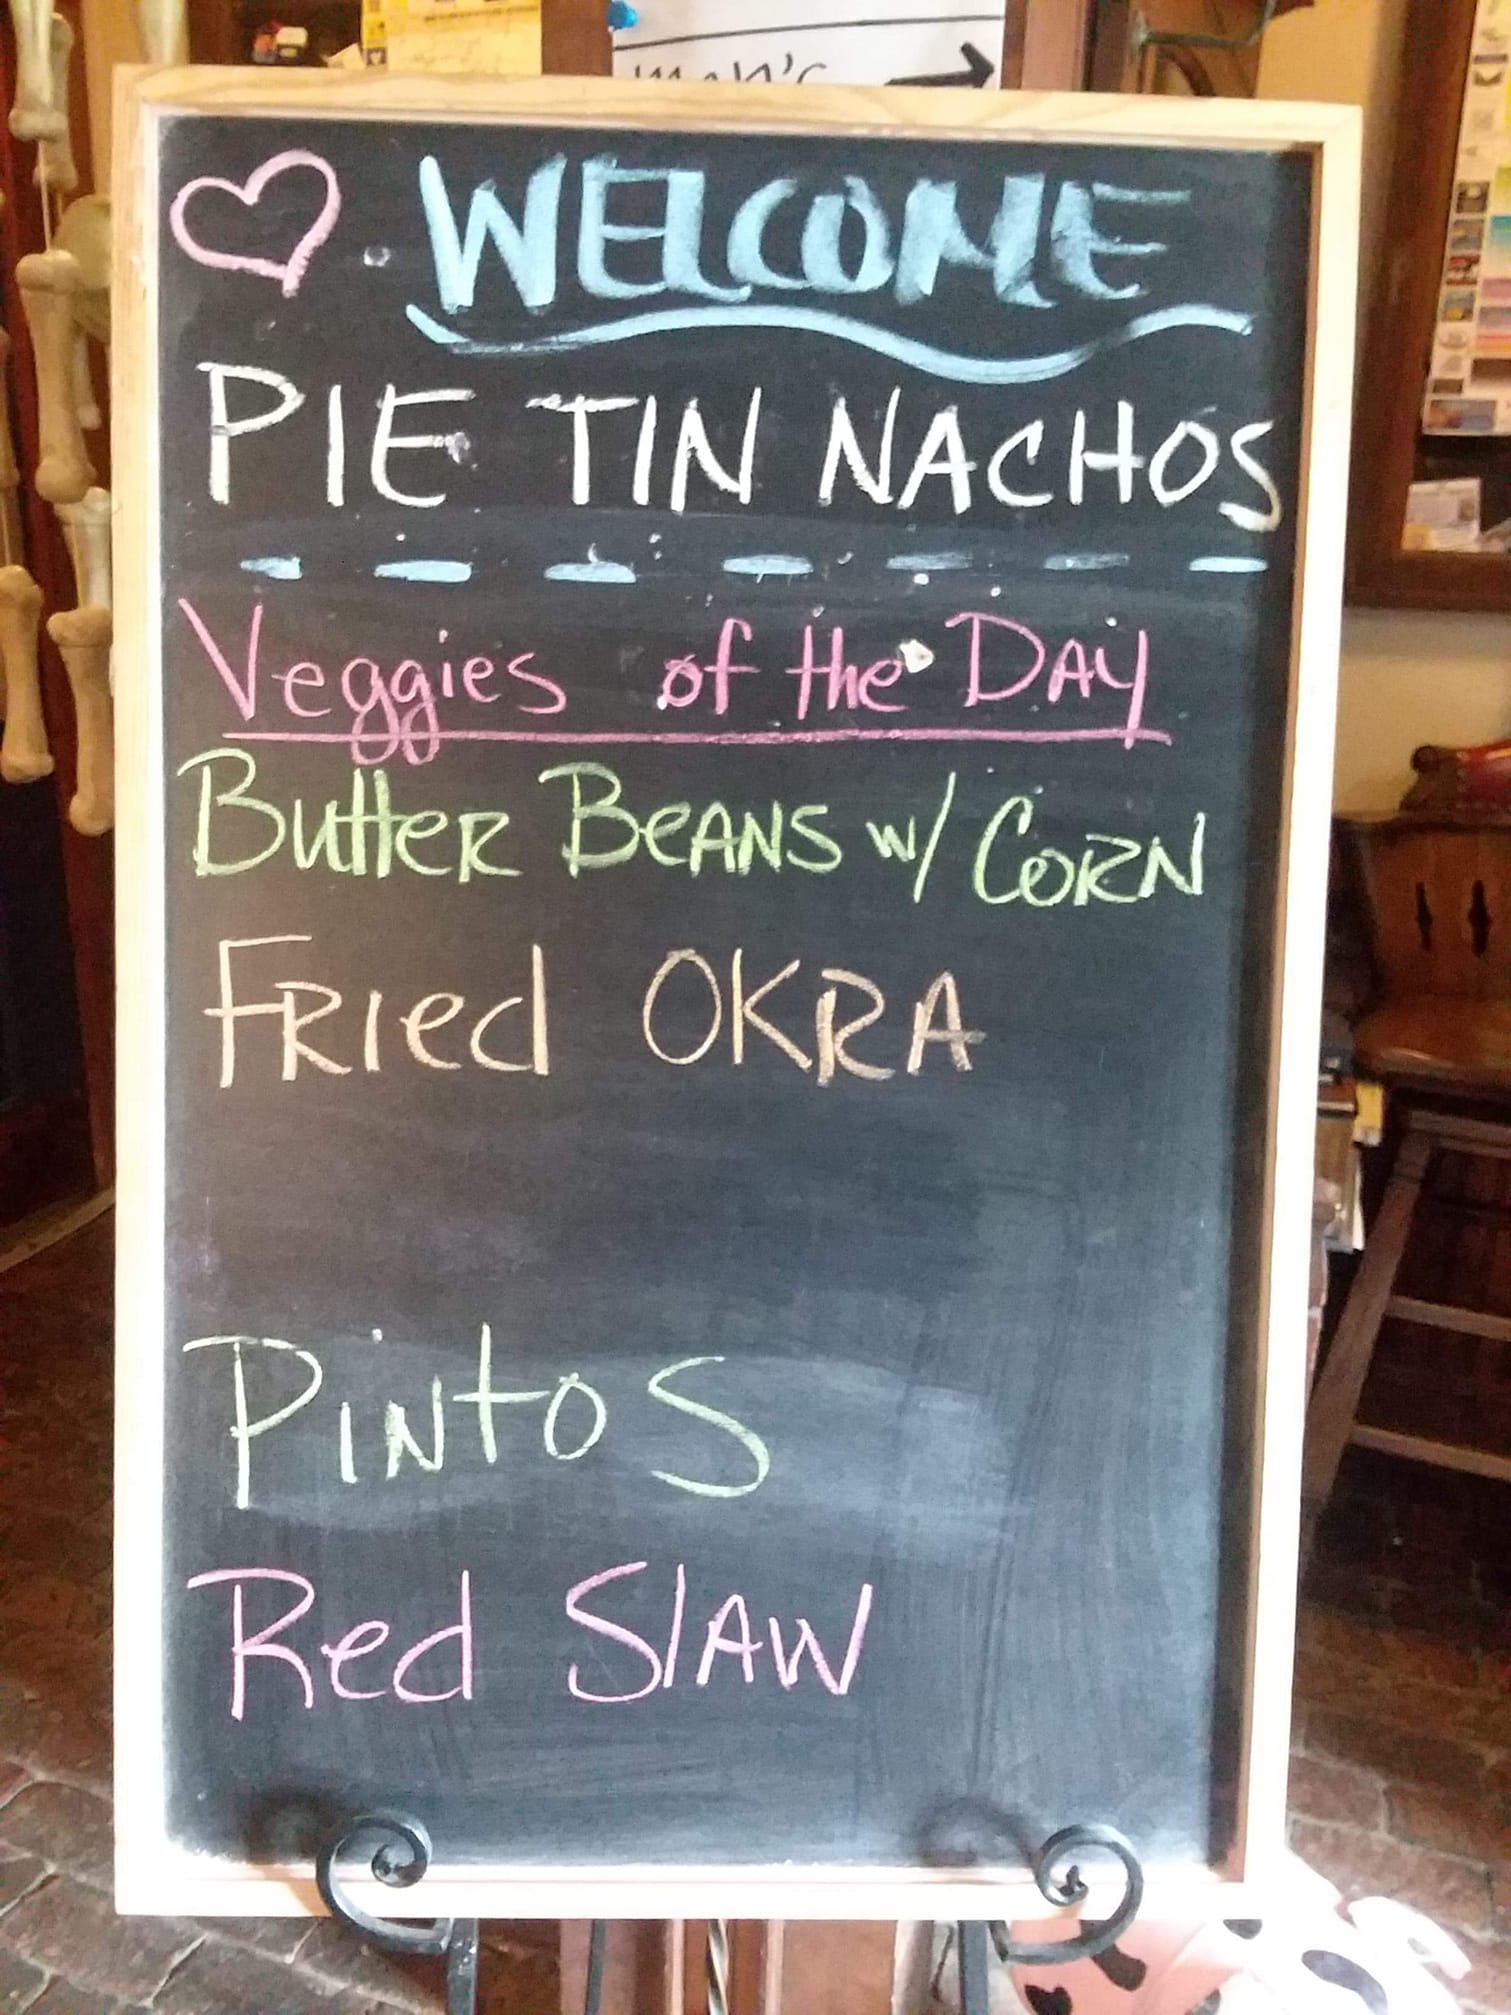 men's
WELCOME
PIE TIN NACHOS
Veggies of the DAY
Butter BeANS w/ CORN
FRied OKRA
PiNtoS
Red SlAW